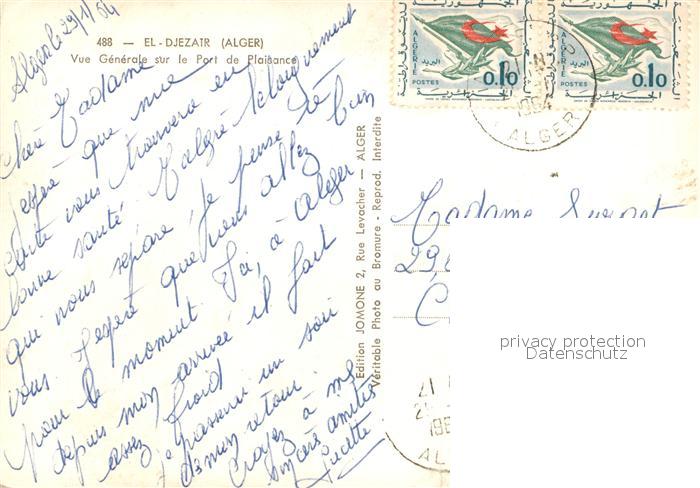 488 — EL-DJEZAIR (ALGER)
Vue Générale sur le Port de Plaisance
Alger le 29/1/64
Chère Madame
J'espère que ma
carte vous trouvera en
bonne santé. Malgré l'éloignement
qui nous sépare, je pense très bien
vous. J'espère que vous allez
pour le moment. Ici, à Alger
depuis mon arrivée il fait
assez froid
Je passerai un soir
dès mon retour.
Croyez à mes
sincères amitiés
Lucette
Edition JOMONE 2, Rue Levacher — ALGER
Véritable Photo au Bromure - Reprod. Interdite
ALGERIE
POSTES
البريد
0,10
ALGERIE
POSTES
البريد
0,10
1964
ALGER
Madame
29
C
privacy protection
Datenschutz
21
25
196
AL